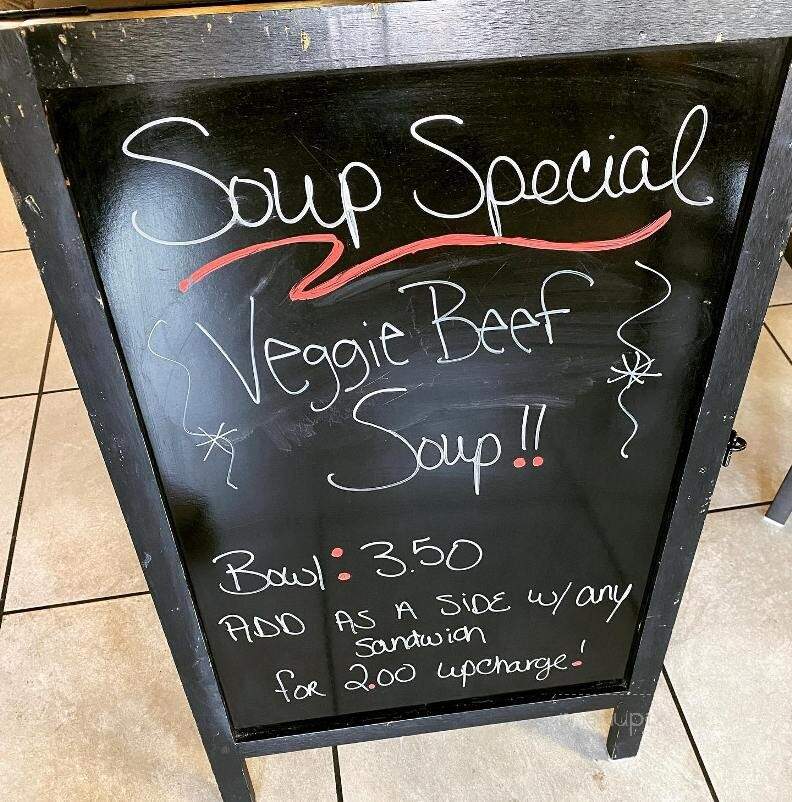 Soup Special
Veggie Beef
Soup!!
Bowl: 3.50
ADD AS A SIDE w/ any
sandwich
for 2.00 upcharge!